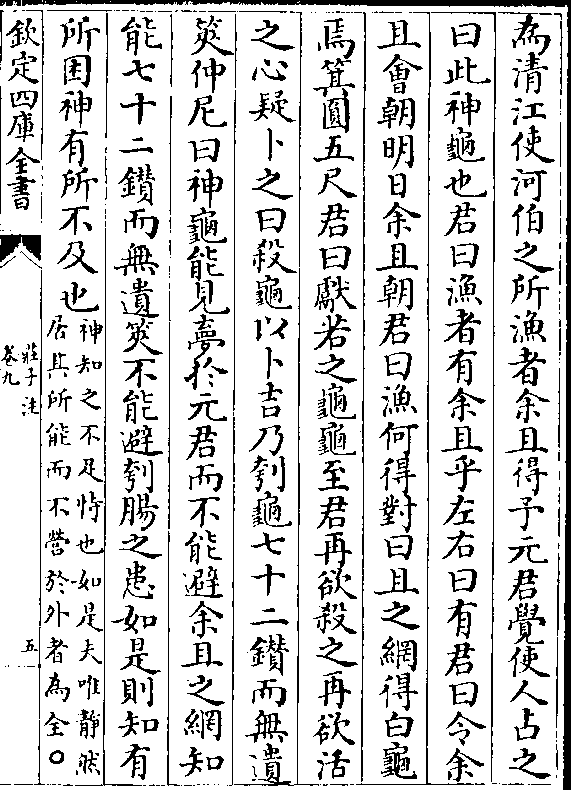 為清江使河伯之所漁者余且得予元君覺使人占之
曰此神龜也君曰漁者有余且乎左右曰有君曰令余
且會朝明日余且朝君曰漁何得對曰且之網得白龜
焉箕圓五尺君曰獻若之龜龜至君再欲殺之再欲活
之心疑卜之曰殺龜以卜吉乃刳龜七十二鑽而無遺
筴仲尼曰神龜能見夢於元君而不能避余且之網知
能七十二鑽而無遺筴不能避刳腸之患如是則知有
所困神有所不及也
神知之不足恃也如是夫唯靜然
居其所能而不營於外者為全○
欽定四庫全書
莊子注
卷九
五